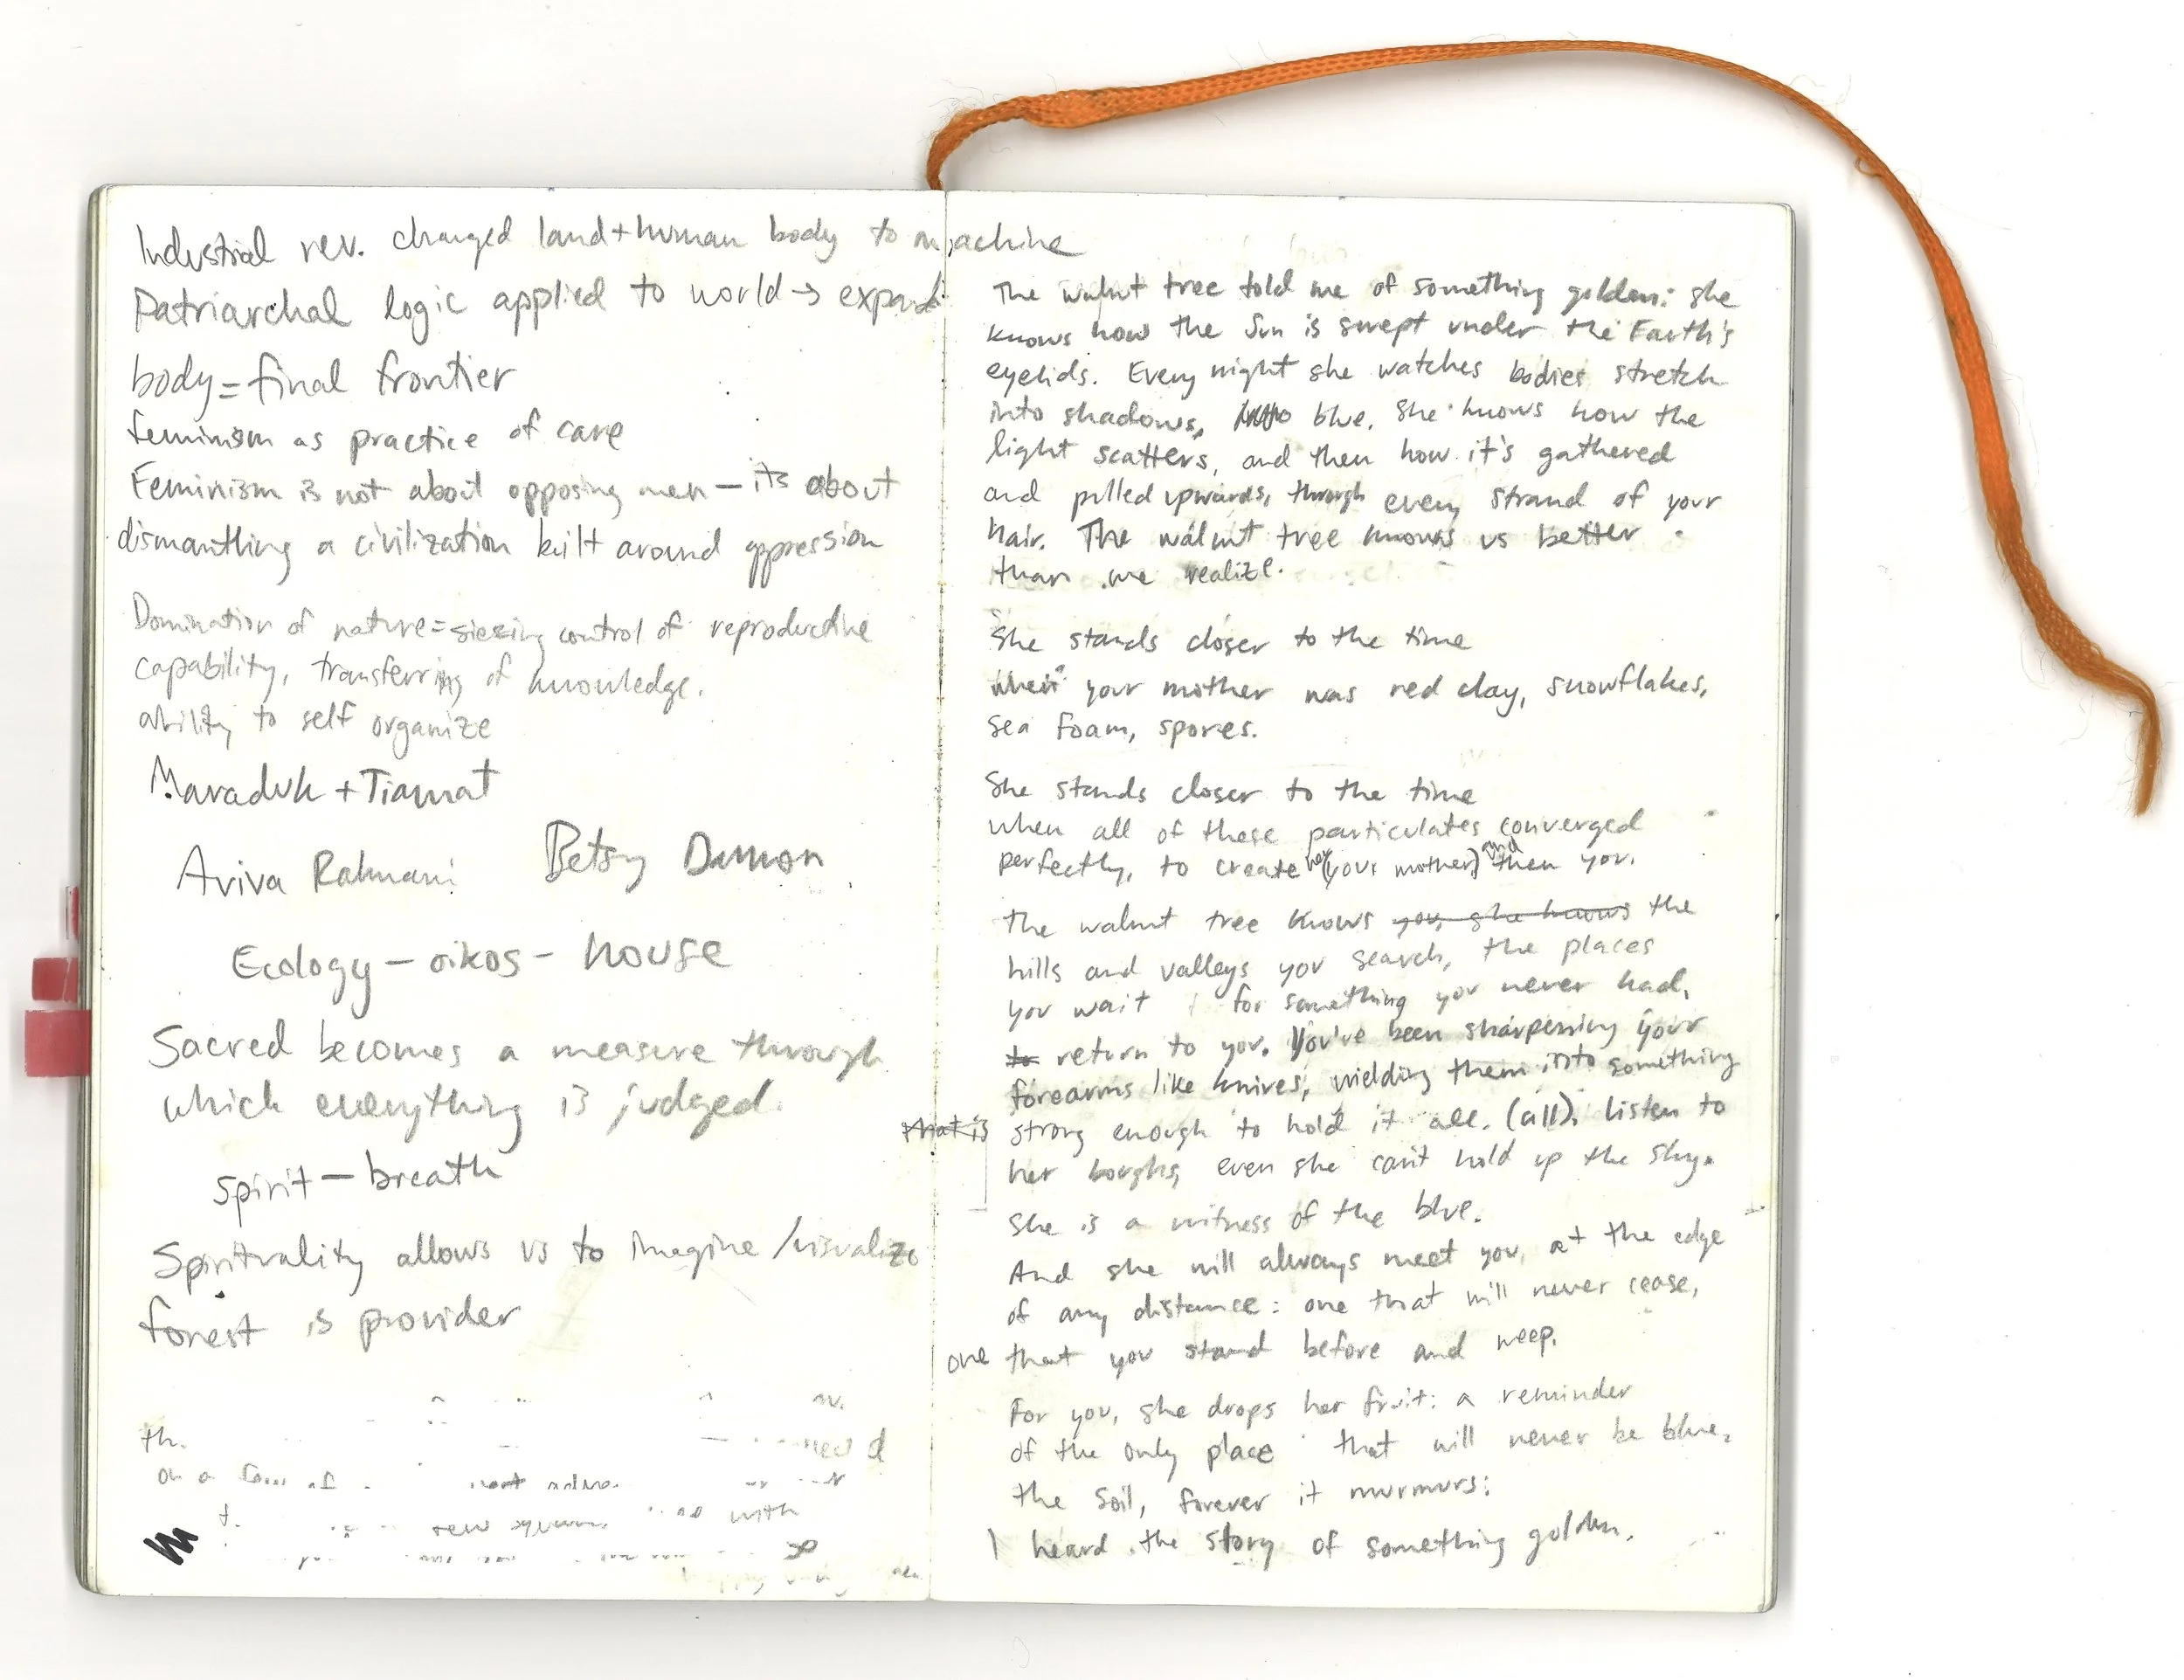 Industrial rev. changed land+human body to machine
Patriarchal logic applied to world → expand
body=final frontier
feminism as practice of care
Feminism is not about opposing men — its about
dismantling a civilization built around oppression
Domination of nature= siezing control of reproductive
capability, transferring of knowledge,
ability to self organize
Maraduk + Tiamat
Aviva Rahmani Betsy Damon
Ecology — oikos — house
Sacred becomes a measure through
which everything is judged.
spirit — breath
Spirituality allows us to imagine / visualize
forest is provider
on a
new with
The walnut tree told me of something golden: she
knows how the Sun is swept under the Earth's
eyelids. Every night she watches bodies stretch
into shadows, into blue. She knows how the
light scatters, and then how it's gathered
and pulled upwards, through every strand of your
hair. The walnut tree knows us better
than we realize.
She stands closer to the time
when your mother was red clay, snowflakes,
sea foam, spores.
She stands closer to the time
when all of these particulates converged
perfectly, to create her (your mother) and then you.
The walnut tree knows you, she knows the
hills and valleys you search, the places
you wait for something you never had,
to return to you. You've been sharpening your
forearms like knives, wielding them into something
that is strong enough to hold it all. (all). Listen to
her boughs, even she can't hold up the sky.
She is a witness of the blue.
And she will always meet you, at the edge
of any distance: one that will never cease,
one that you stand before and weep.
For you, she drops her fruit: a reminder
of the only place that will never be blue.
the soil, forever it murmurs:
I heard the story of something golden.